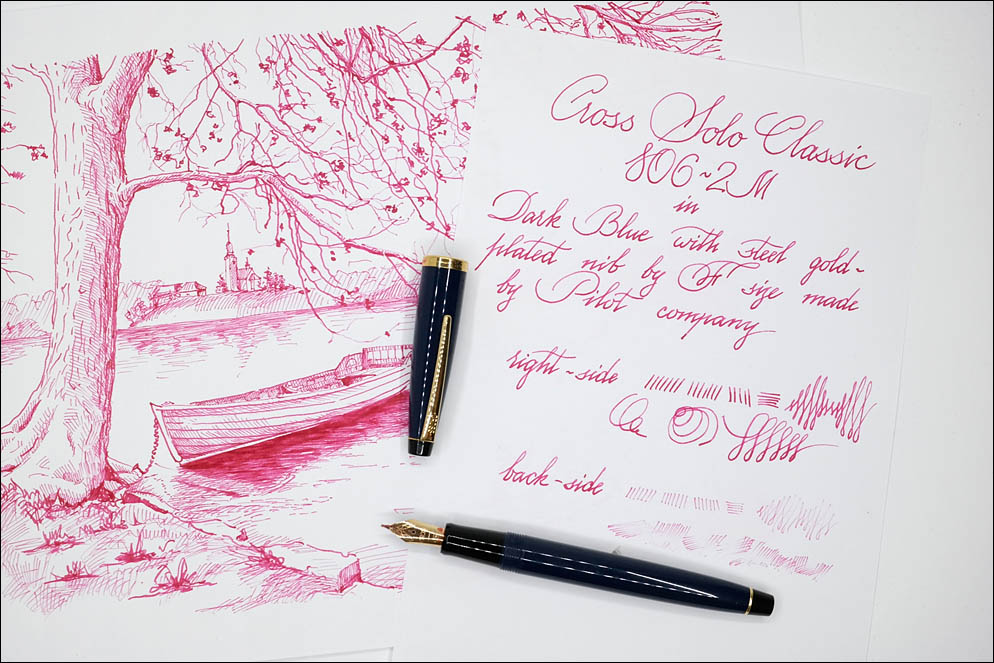 Cross Solo Classic
806~2M
in
Dark Blue with steel gold-
plated nib by F size made
by Pilot company
right-side
back-side